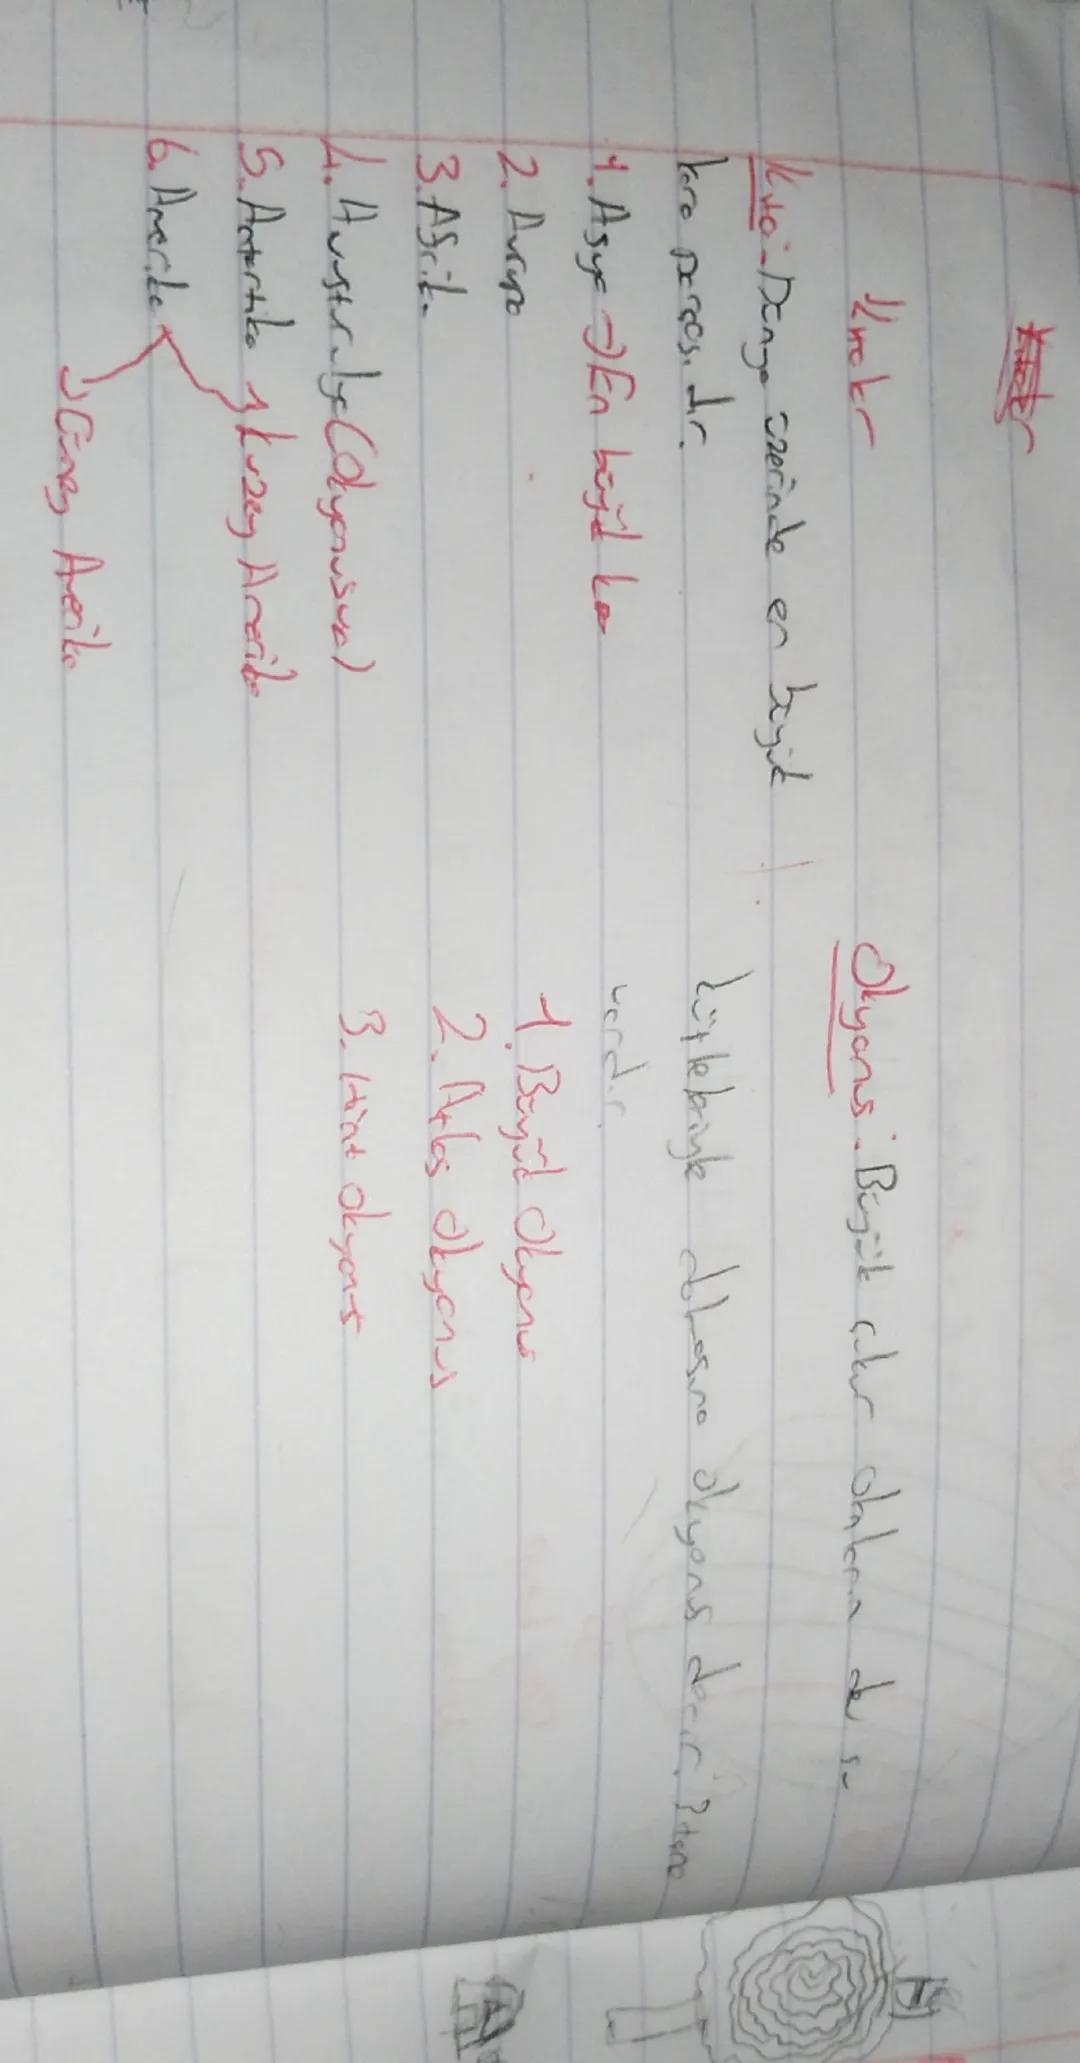 Kıtalar
Kıta: Dünya üzerinde en büyük
kara parçası dır.
1. Asya → En büyük kara
2. Avrupa
3. Afrika
4. Avusturalya (Okyanusya)
5. Antartika
6. Amerika
Kuzey Amerika
Güney Amerika
Okyanus: Büyük çukur olanların da su
kütleleriyle dolmasına okyanus denir. 3 tane
vardır.
1. Büyük Okyanus
2. Atlas Okyanus
3. Hint Okyanus